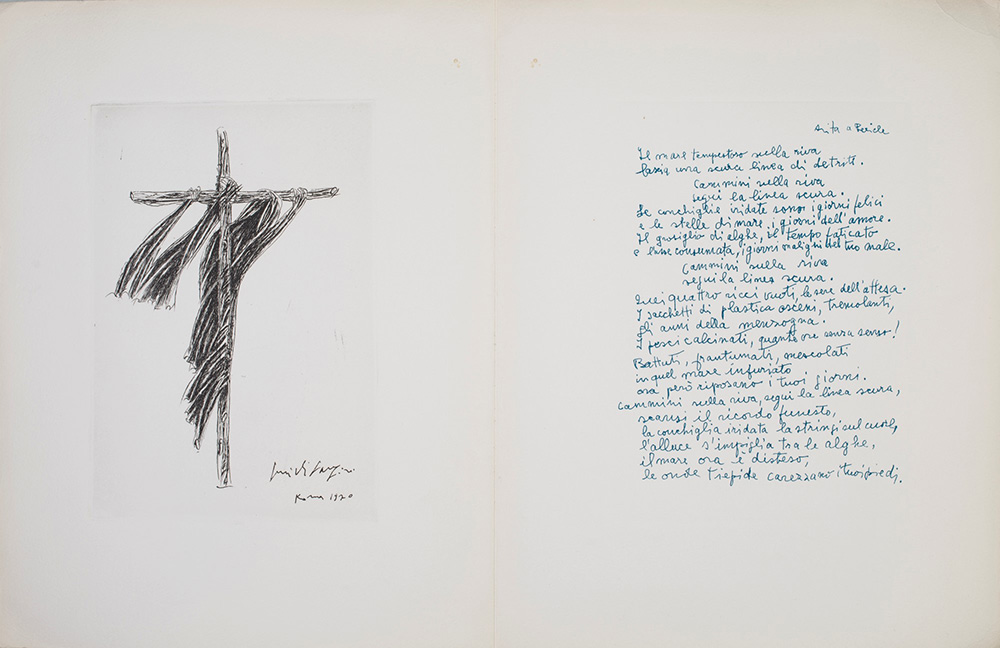 Roma 1970
Anita a Pericle
Il mare tempestoso sulla riva
lascia una scura linea di detriti.
Cammini sulla riva
segui la linea scura.
Le conchiglie iridate sono i giorni felici
e le stelle di mare, i giorni dell'amore.
Il groviglio di alghe, il tempo faticato
e l'esse consumata, i giorni maligni del tuo male.
Cammini sulla riva
segui la linea scura.
Quei quattro ricci vuoti, le sere dell'attesa.
I sacchetti di plastica osceni, tremolanti,
gli anni della menzogna.
I pesci calcinati, quante ore senza senso!
Battuti, frantumati, mescolati
in quel mare infuriato
ora però riposano i tuoi giorni.
Cammini sulla riva, segui la linea scura,
scansi il ricordo funesto,
la conchiglia iridata la stringi sul cuore,
l'alluce s'impiglia tra le alghe,
il mare ora è disteso,
le onde tiepide carezzano i tuoi piedi.